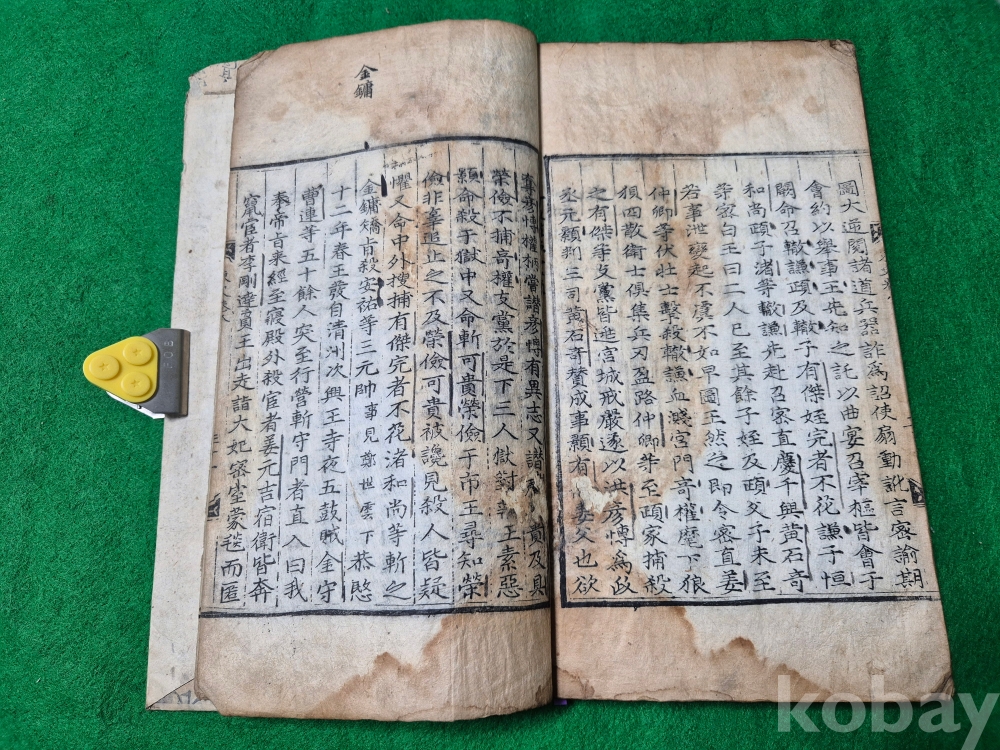 圖大逆閱諸道兵器詐爲詔使扇動訛言密諭期
會約以舉事王先知之託以曲宴召宰樞皆會子
闕命召轍謙頤及轍子有傑姪完者不花謙子恒
和尚頤子渚等轍謙先赴召密直慶千興黃石奇
等密白王曰二人已至其餘子姪及頤父子未至
若事泄變起不虞不如早圖王然之即令密直姜
仲卿等伏壯士擊殺轍謙血濺宮門奇權麾下狼
狽四散衛士俱集兵刃盈路仲卿等至頤家捕殺
之有傑等支黨皆逃宮城戒嚴遂以洪彥博爲政
丞元顥判三司黃石奇贊成事顥有妻父也欲
奪彥博權柄嘗譖彥博有異志又譖貴及具
榮儉不捕奇權支黨於是下二人獄對王素惡
顥命殺于獄中又命斬可貴榮儉于市王尋知榮
儉非辜追止之不及榮儉可貴被讒見殺人皆疑
懼又命中外搜捕有傑完者不花渚和尚等斬之
金鏞
金鏞矯旨殺安祐等三元帥事見鄭世雲下恭愍
十二年春王發自清州次興王寺夜五鼓賊金守
曹連等五十餘人突至行營斬守門者直入曰我
奉帝旨來經至寢殿外殺宦者姜元吉宿衛皆奔
竄宦者李剛達負王出走詣大妃密室蒙毯而匿
kobay